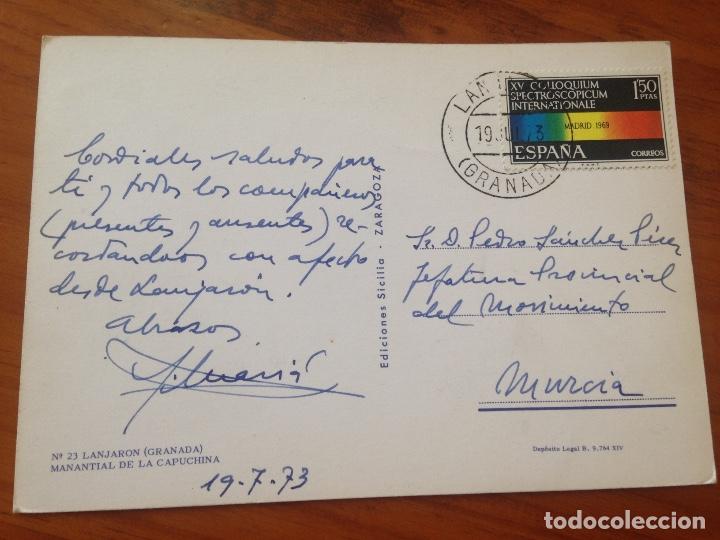 XV COLLOQUIUM
SPECTROSCOPICUM
INTERNATIONALE
1'50
PTAS
MADRID 1969
ESPAÑA
CORREOS
LAN
19 JUL 73
(GRANADA)
Cordiales saludos para
ti y todos los compañeros,
(presentes y ausentes) re-
cordándoos con afecto
desde Lanjarón.
Abrazos
Ediciones Sicilia · ZARAGOZA
Sr. D. Pedro Sánchez Pérez
Jefatura Provincial
del Movimiento
Murcia
Nº 23 LANJARON (GRANADA)
MANANTIAL DE LA CAPUCHINA
19-7-73
Depósito Legal B. 9.764 XIV
todocoleccion.net